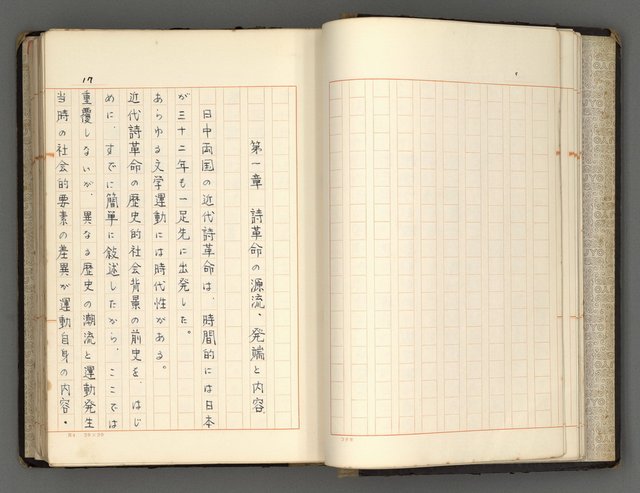 17
第一章　詩革命の源流・発端と内容
日中両国の近代詩革命は、時間的には日本
が三十二年も一足先に出発した。
あらゆる文学運動には時代性がある。
近代詩革命の歴史的社会背景の前史を、はじ
めに、すでに簡単に叙述したから、ここでは
重覆しないが、異なる歴史の潮流と運動発生
当時の社会的要素の差異が運動自身の内容・
20×20